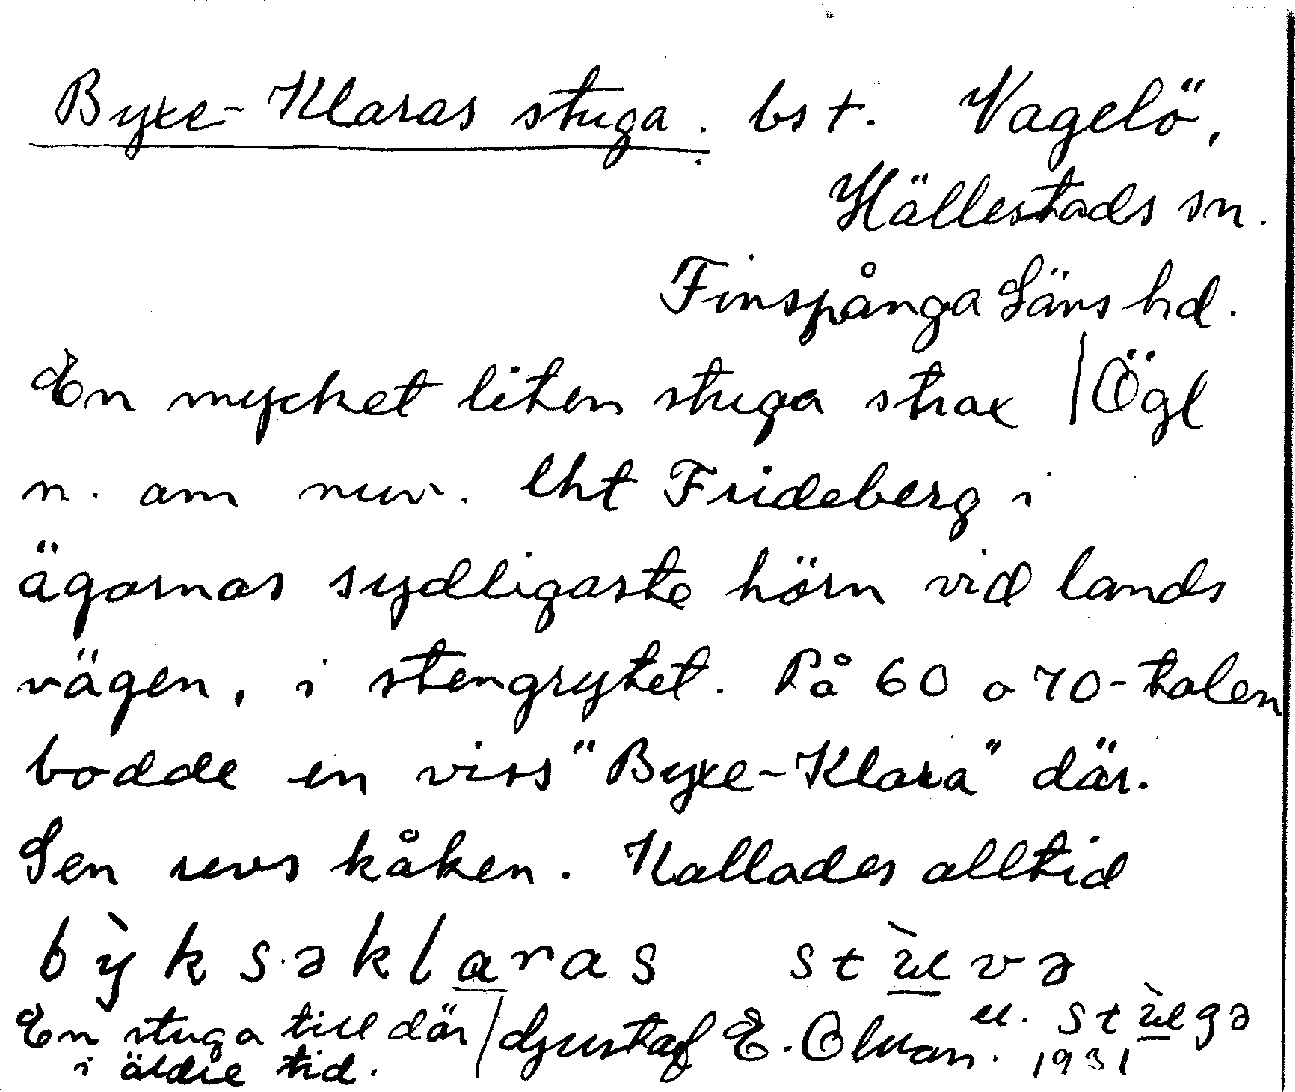 Byxe-Klaras stuga. bst. Vagelö,
Hällestads sn.
Finspånga läns hd.
En mycket liten stuga strax | Ögl
n. om nuv. lht Frideberg i
ägornas sydligaste hörn vid lands
vägen, i stengrytet. På 60 o 70-talen
bodde en viss "Byxe-Klara" där.
Sen revs kåken. Kallades alltid
bỳksəklaras stùvə
el. stùgə
En stuga till där / Gustaf E. Olsson. 1931
i äldre tid.